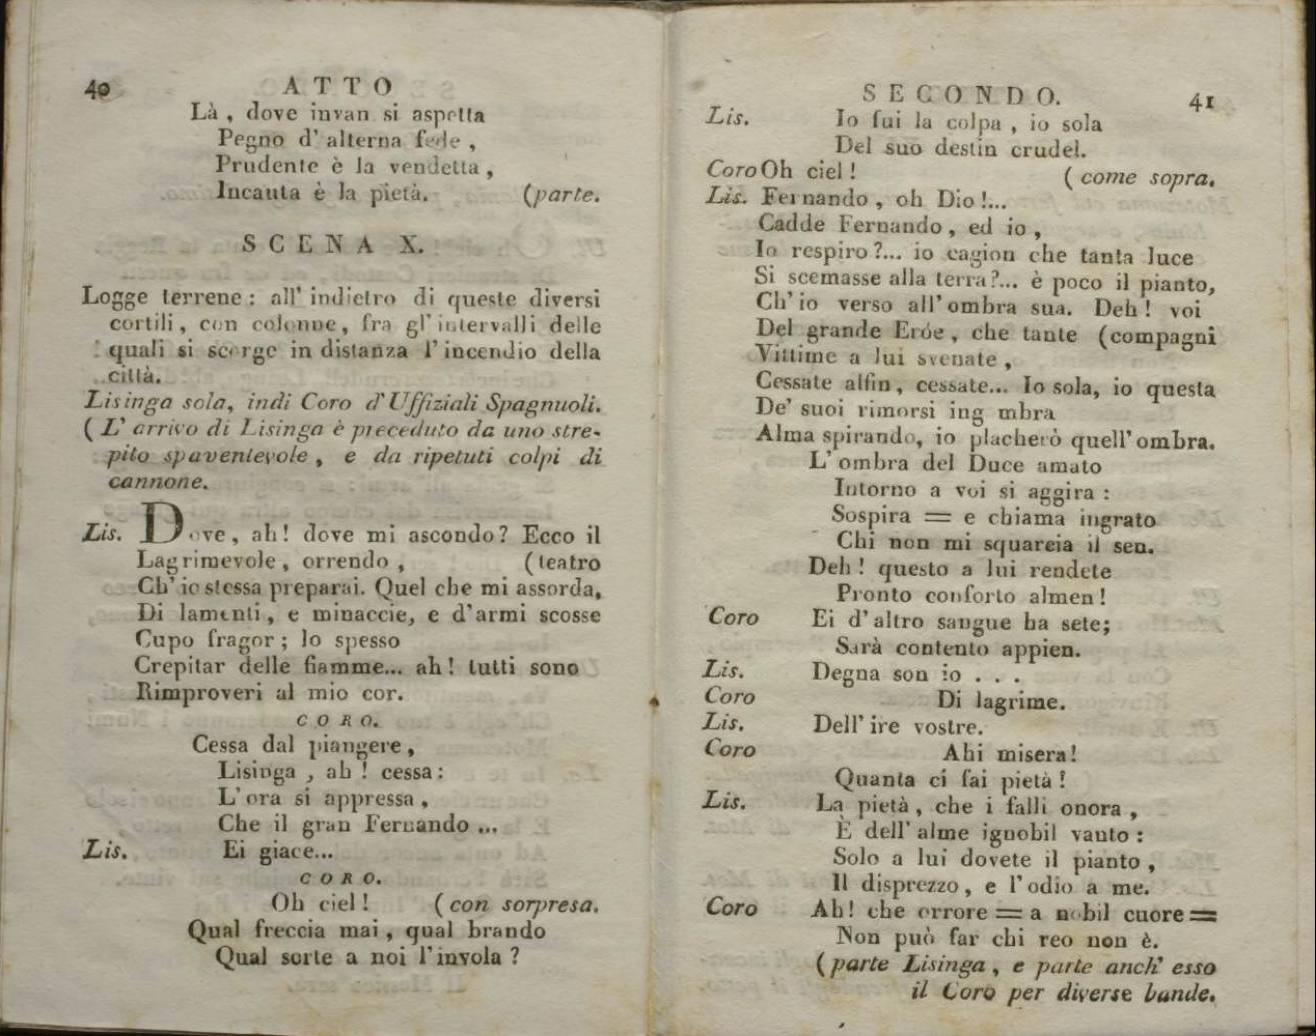 40 ATTO
Là, dove invan si aspetta
Pegno d' alterna fede,
Prudente è la vendetta,
Incauta è la pietà. (parte.
SCENA X.
Logge terrene: all' indietro di queste diversi
cortili, con colonne, fra gl' intervalli delle
quali si scorge in distanza l' incendio della
città.
Lisinga sola, indi Coro d' Uffiziali Spagnuoli.
( L' arrivo di Lisinga è preceduto da uno stre-
pito spaventevole, e da ripetuti colpi di
cannone.
Lis. Dove, ah! dove mi ascondo? Ecco il
Lagrimevole, orrendo, (teatro
Ch' io stessa preparai. Quel che mi assorda,
Di lamenti, e minaccie, e d' armi scosse
Cupo fragor; lo spesso
Crepitar delle fiamme... ah! tutti sono
Rimproveri al mio cor.
CORO.
Cessa dal piangere,
Lisinga, ah! cessa:
L' ora si appressa,
Che il gran Fernando ...
Lis. Ei giace...
CORO.
Oh ciel! (con sorpresa.
Qual freccia mai, qual brando
Qual sorte a noi l' invola?
SECONDO. 41
Lis. Io fui la colpa, io sola
Del suo destin crudel.
Coro Oh ciel! ( come sopra.
Lis. Fernando, oh Dio!...
Cadde Fernando, ed io,
Io respiro?... io cagion che tanta luce
Si scemasse alla terra?... è poco il pianto,
Ch' io verso all' ombra sua. Deh! voi
Del grande Eróe, che tante (compagni
Vittime a lui svenate,
Cessate alfin, cessate... Io sola, io questa
De' suoi rimorsi ing mbra
Alma spirando, io placherò quell' ombra.
L' ombra del Duce amato
Intorno a voi si aggira:
Sospira = e chiama ingrato
Chi non mi squarcia il sen.
Deh! questo a lui rendete
Pronto conforto almen!
Coro Ei d' altro sangue ha sete;
Sarà contento appien.
Lis. Degna son io . . .
Coro Di lagrime.
Lis. Dell' ire vostre.
Coro Ahi misera!
Quanta ci fai pietà!
Lis. La pietà, che i falli onora,
È dell' alme ignobil vanto:
Solo a lui dovete il pianto,
Il disprezzo, e l' odio a me.
Coro Ah! che orrore = a nobil cuore =
Non può far chi reo non è.
(parte Lisinga, e parte anch' esso
il Coro per diverse bande.